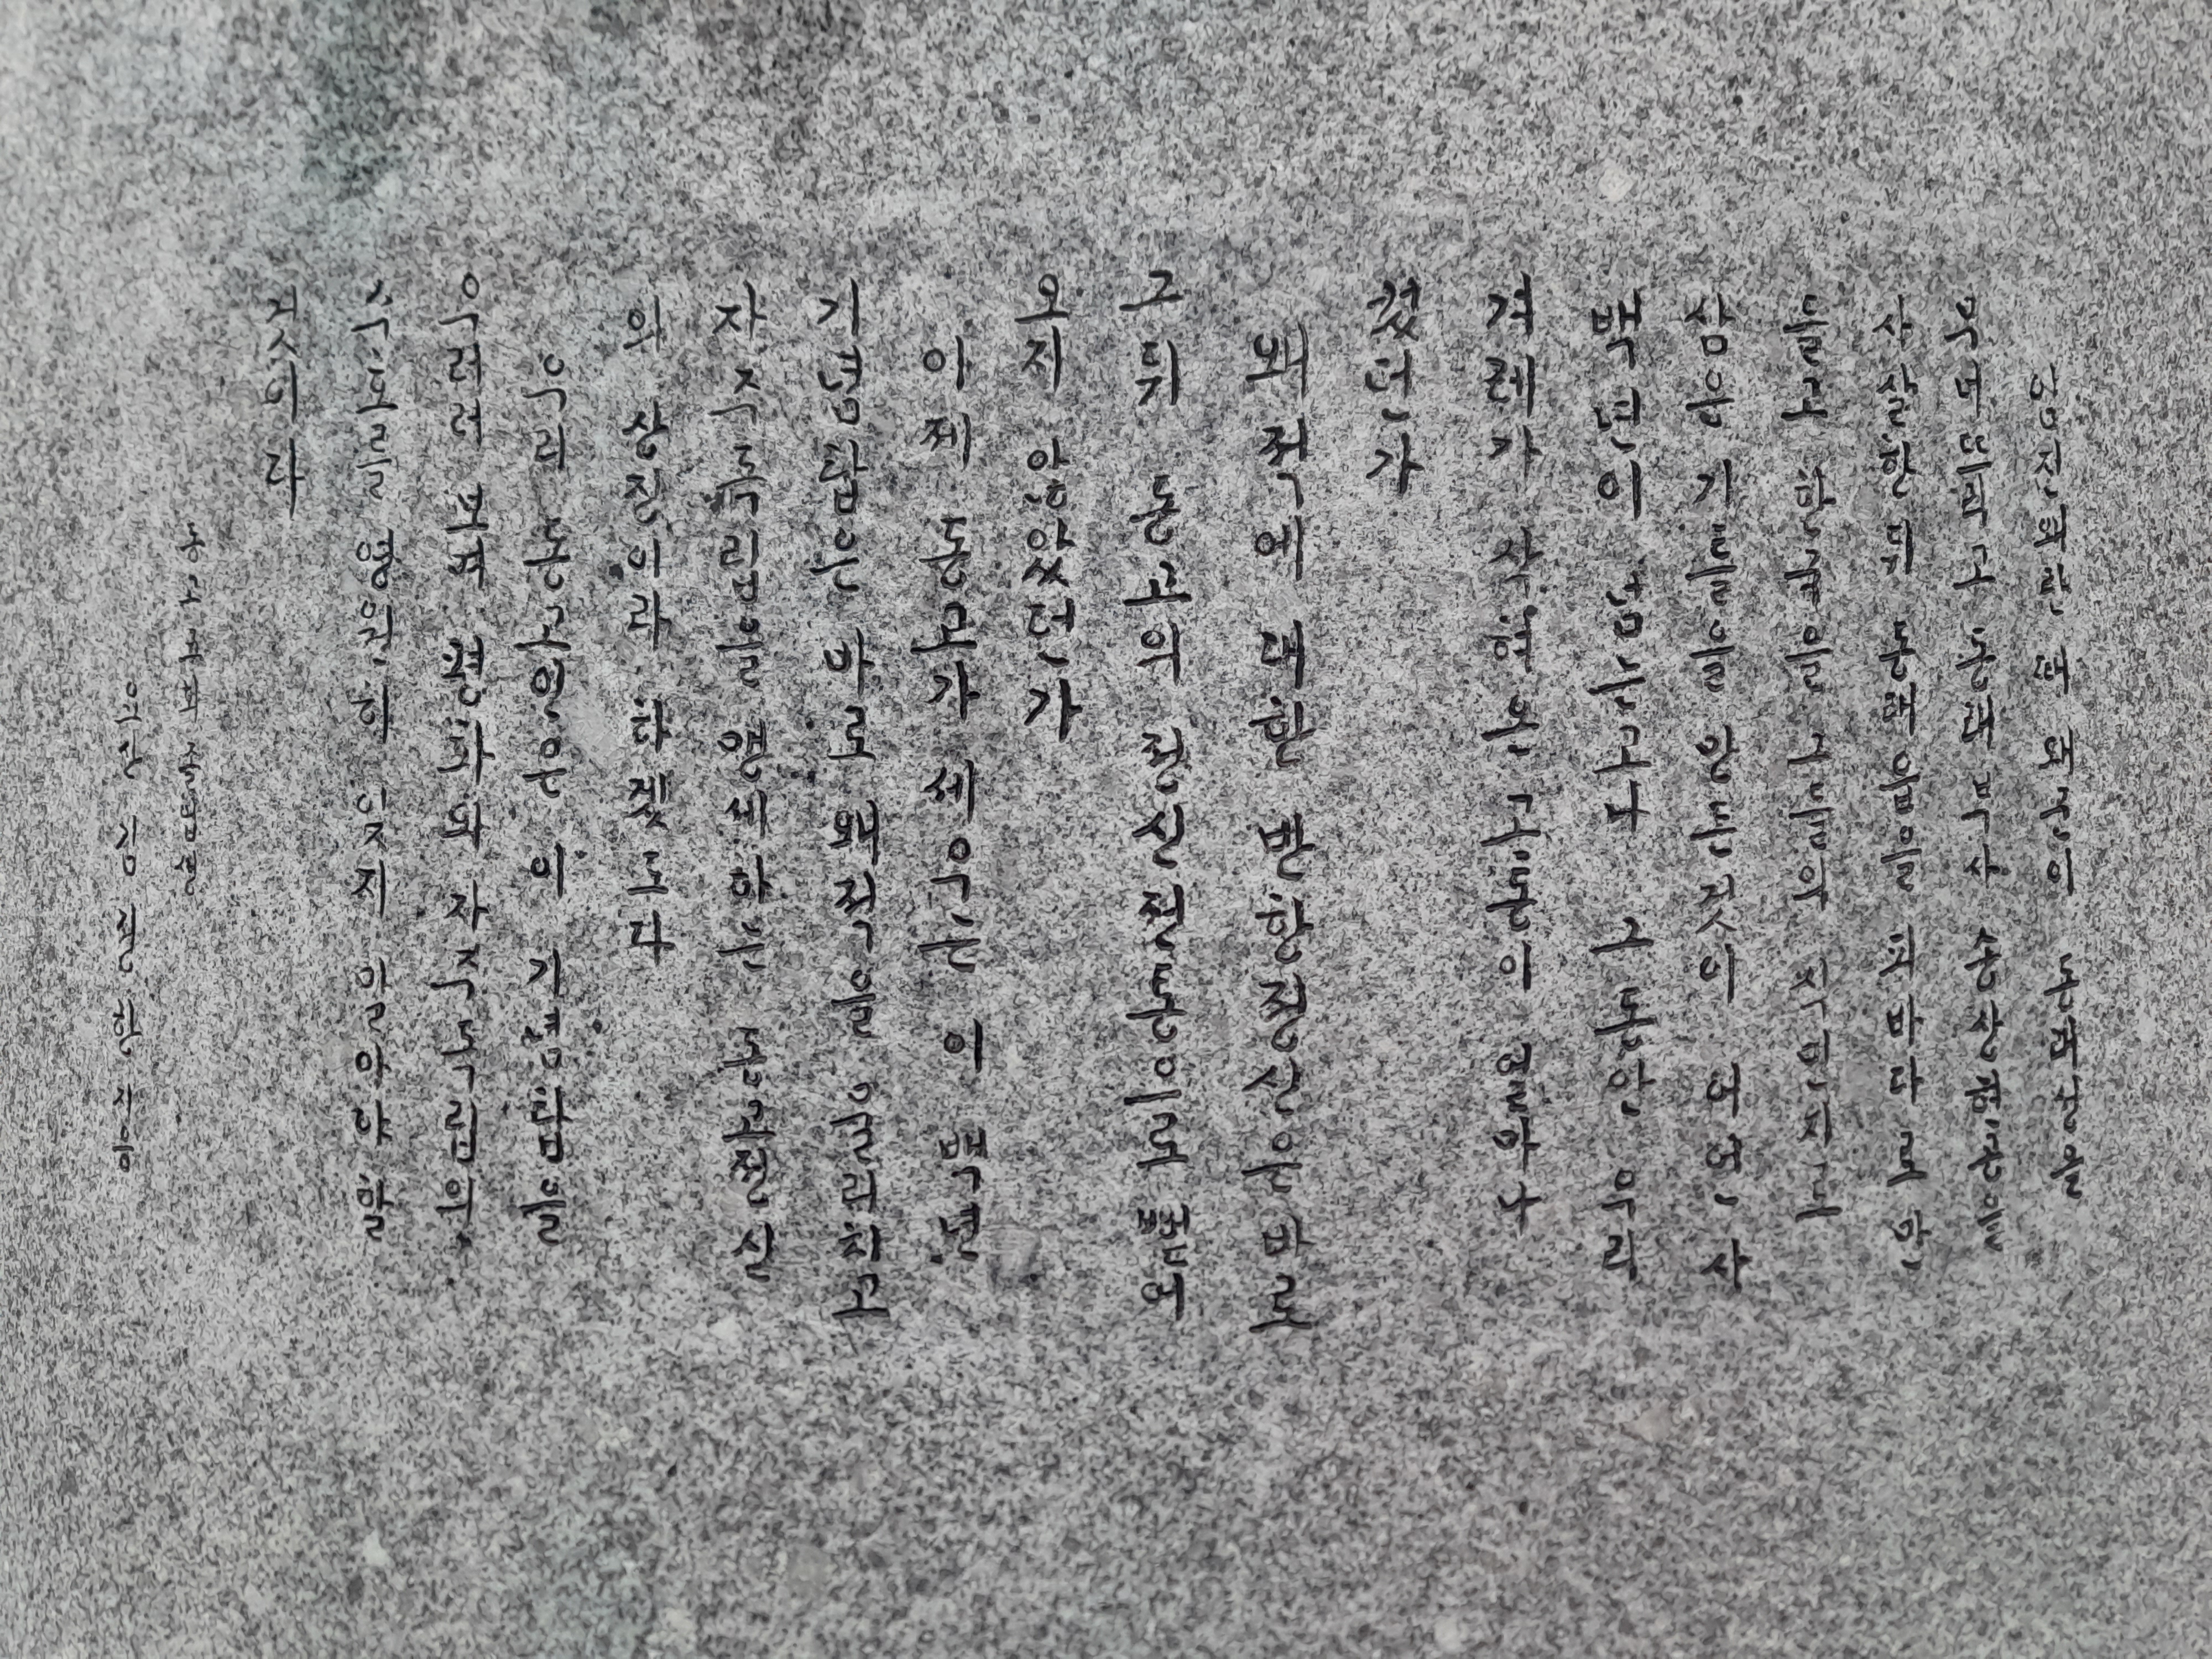 임진왜란 때 왜군이 동래성을
무너뜨리고 동래부사 송상현공을
사살한뒤 동래읍을 피바다로 만
들고 한국을 그들의 식민지로
삼은 기틀을 만든것이 어언 사
백년이 넘는고나 그동안 우리
겨레가 삭혀온 고통이 얼마나
컸던가
왜적에 대한 반항정신은 바로
그뒤 동고의 정신전통으로 뻗어
오지 않았던가
이제 동고가 세우는 이 백년
기념탑은 바로 왜적을 물리치고
자주독립을 맹세하는 동고정신
의 상징이라 하겠도다
우리 동고인은 이 기념탑을
우러러 보며 평화와 자주독립의
수호를 영원히 잊지 말아야 할
것이다
동고 회 졸업생
요산 김정한 지음